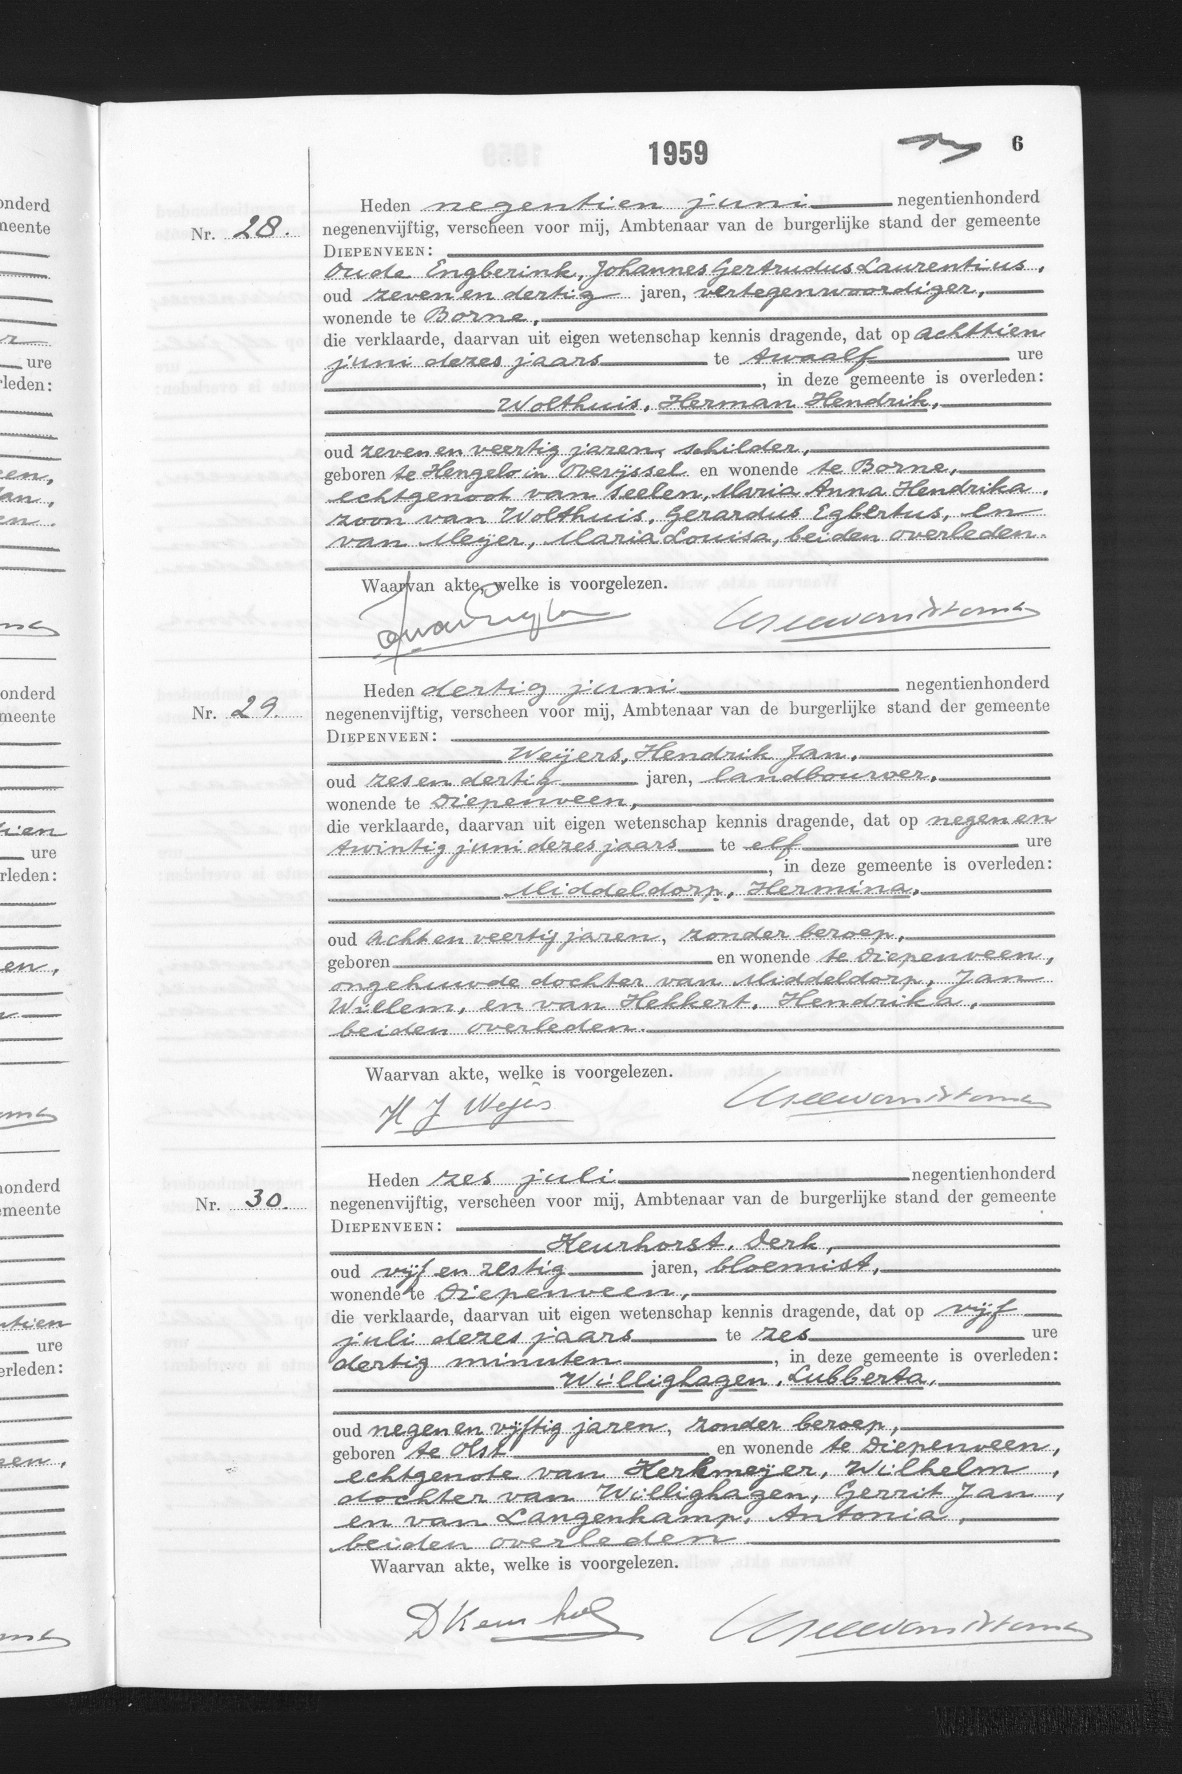 1959
6
Heden negentien juni negentienhonderd
Nr. 28.
negenenvijftig, verscheen voor mij, Ambtenaar van de burgerlijke stand der gemeente
DIEPENVEEN:
Oude Engberink, Johannes Gertrudus Laurentius,
oud zeven en dertig jaren, vertegenwoordiger,
wonende te Borne,
die verklaarde, daarvan uit eigen wetenschap kennis dragende, dat op achttien
juni dezes jaars te twaalf ure
, in deze gemeente is overleden:
Wolthuis, Herman Hendrik,
oud zeven en veertig jaren, schilder,
geboren te Hengelo in Overijssel en wonende te Borne,
echtgenoot van Seelen, Maria Anna Hendrika,
zoon van Wolthuis, Gerardus Egbertus, en
van Meijer, Maria Louisa, beiden overleden.
Waarvan akte, welke is voorgelezen.
Heden dertig juni negentienhonderd
Nr. 29.
negenenvijftig, verscheen voor mij, Ambtenaar van de burgerlijke stand der gemeente
DIEPENVEEN:
Weijers, Hendrik Jan,
oud zes en dertig jaren, landbouwer,
wonende te Diepenveen,
die verklaarde, daarvan uit eigen wetenschap kennis dragende, dat op negen en
twintig juni dezes jaars te elf ure
, in deze gemeente is overleden:
Middeldorp, Hermina,
oud acht en veertig jaren, zonder beroep,
geboren en wonende te Diepenveen,
ongehuwde dochter van Middeldorp, Jan
Willem, en van Hekkert, Hendrika,
beiden overleden.
Waarvan akte, welke is voorgelezen.
H J Weijers
Heden zes juli negentienhonderd
Nr. 30.
negenenvijftig, verscheen voor mij, Ambtenaar van de burgerlijke stand der gemeente
DIEPENVEEN:
Keurhorst, Derk,
oud vijf en zestig jaren, bloemist,
wonende te Diepenveen,
die verklaarde, daarvan uit eigen wetenschap kennis dragende, dat op vijf
juli dezes jaars te zes ure
dertig minuten, in deze gemeente is overleden:
Willighagen, Lubberta,
oud negen en vijftig jaren, zonder beroep,
geboren te Olst en wonende te Diepenveen,
echtgenote van Herkmeijer, Wilhelm,
dochter van Willighagen, Gerrit Jan,
en van Langenkamp, Antonia,
beiden overleden
Waarvan akte, welke is voorgelezen.